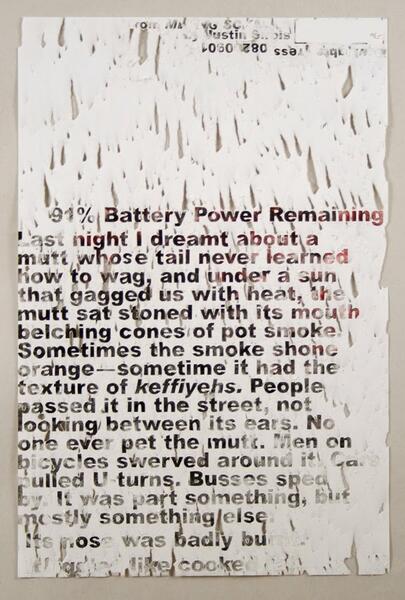 91% Battery Power Remaining
Last night I dreamt about a
mutt whose tail never learned
how to wag, and under a sun
that gagged us with heat, the
mutt sat stoned with its mouth
belching cones of pot smoke.
Sometimes the smoke shone
orange—sometime it had the
texture of keffiyehs. People
passed it in the street, not
looking between its ears. No
one ever pet the mutt. Men on
bicycles swerved around it. Cars
pulled U-turns. Busses sped
by. It was part something, but
mostly something else.
Its nose was badly
like cooked